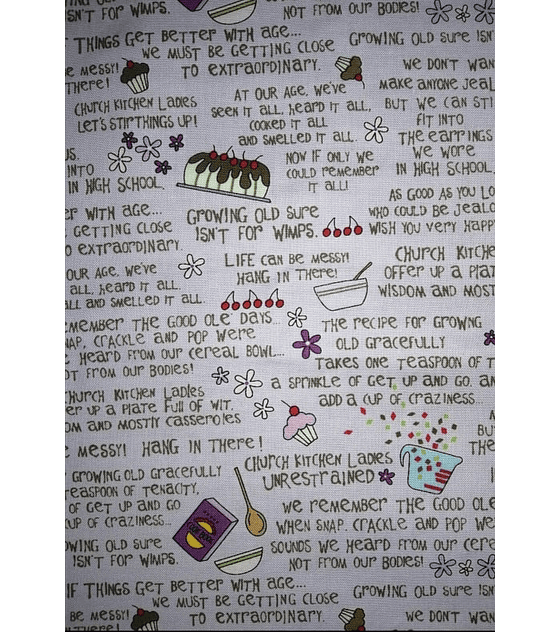 ISN'T FOR WIMPS.
NOT FROM OUR BODIES!
THINGS GET BETTER WITH AGE...
WE MUST BE GETTING CLOSE
TO EXTRAORDINARY.
GROWING OLD SURE ISN'T
E MESSY!
THERE!
WE DON'T WAN
MAKE ANYONE JEAL
BUT WE CAN STI
FIT INTO
THE EARRINGS
WE WORE
IN HIGH SCHOOL.
CHURCH KITCHEN LADIES
LET'S STIR THINGS UP!
AT OUR AGE, WE'VE
SEEN IT ALL, HEARD IT ALL,
COOKED IT ALL
AND SMELLED IT ALL.
NOW IF ONLY WE
COULD REMEMBER
IT ALL!
US.
INTO
IN HIGH SCHOOL.
AS GOOD AS YOU LO
WHO COULD BE JEALO
WISH YOU VERY HAPP
ER WITH AGE...
GETTING CLOSE
O EXTRAORDINARY.
GROWING OLD SURE
ISN'T FOR WIMPS.
LIFE CAN BE MESSY!
HANG IN THERE!
CHURCH KITCHE
OFFER UP A PLAT
WISDOM AND MOST
OUR AGE, WE'VE
ALL, HEARD IT ALL,
ALL AND SMELLED IT ALL.
EMEMBER THE GOOD OLE DAYS...
NAP, CRACKLE AND POP WERE
HEARD FROM OUR CEREAL BOWL...
OT FROM OUR BODIES!
THE RECIPE FOR GROWNG
OLD GRACEFULLY
TAKES ONE TEASPOON OF T
A SPRINKLE OF GET UP AND GO, AN
ADD A CUP OF CRAZINESS...
HURCH KITCHEN LADIES
ER UP A PLATE FULL OF WIT,
OM AND MOSTLY CASSEROLES
E MESSY! HANG IN THERE!
CHURCH KITCHEN LADIES
UNRESTRAINED
BU
THE
GROWING OLD GRACEFULLY
TEASPOON OF TENACITY,
OF GET UP AND GO
CUP OF CRAZINESS...
WE REMEMBER THE GOOD OLE
WHEN SNAP, CRACKLE AND POP WE
SOUNDS WE HEARD FROM OUR CERE
NOT FROM OUR BODIES!
OWING OLD SURE
ISN'T FOR WIMPS.
IF THINGS GET BETTER WITH AGE...
WE MUST BE GETTING CLOSE
TO EXTRAORDINARY.
GROWING OLD SURE ISN'T
BE MESSY!
THERE!
WE DON'T WAN